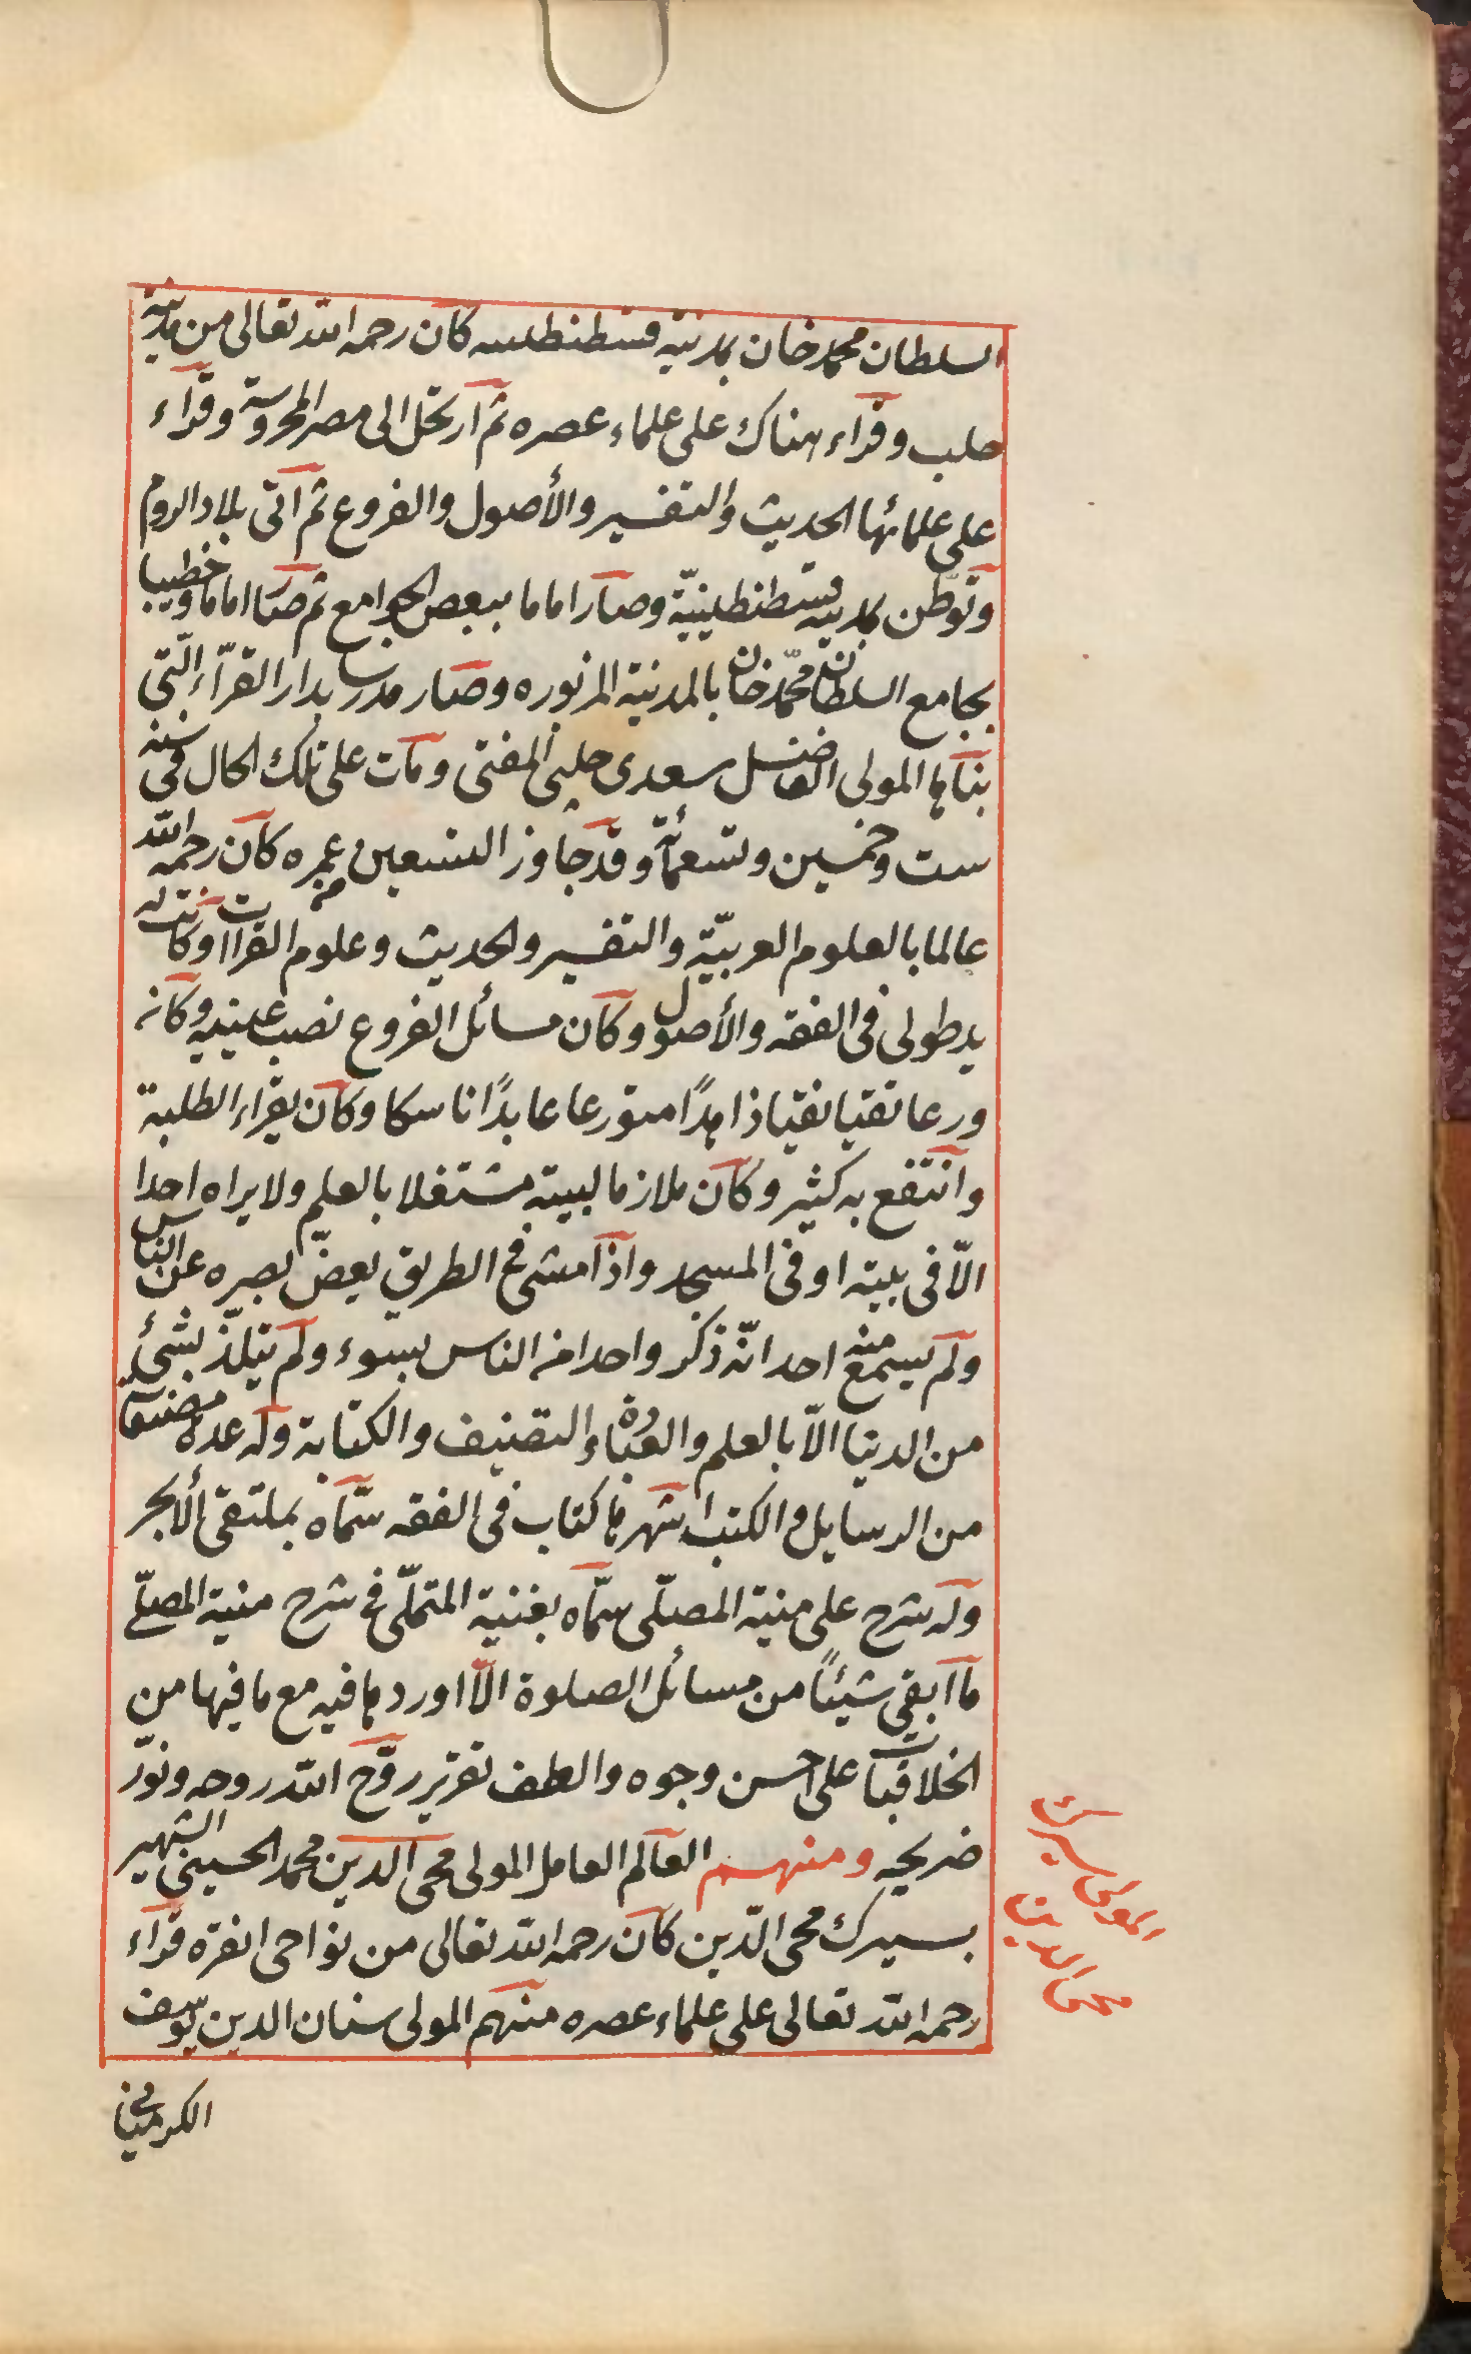 السلطان محمد خان بمدينة قسطنطنيه كان رحمه الله تعالى من مدينة
حلب وقراء هناك على علماء عصره ثم ارتحل الى مصر المحروسة وقراء
على علمائها الحديث والتفسير والأصول والفروع ثم اتى بلاد الروم
وتوطّن بمدينة قسطنطينيّة وصار اماما ببعض الجوامع ثم صار اماما وخطيبا
بجامع السلطان محمّد خان بالمدينة المزبوره وصار مدرسا بدار القرّاء الّتي
بناها المولى الفاضل سعدى چلبى المفتى ومات على تلك الحال في سنة
ست وخمسين وتسعمأئة وقد جاوز التسعين من عمره كان رحمه الله
عالما بالعلوم العربيّة والتفسير والحديث وعلوم القراات وكانت له
يد طولى فى الفقه والأصول وكان مسائل الفروع نصب عينيه وكان
ورعا تقيا نقيا زاهدًا متورعا عابدًا ناسكا وكان يقراء الطلبة
وانتفع به كثير وكان ملازما لبيته مشتغلا بالعلم ولا يراه احدا
الّا فى بيته او فى المسجد واذا مشى فى الطريق يغضّ بصره عن الناس
ولم يسمع منه احد انّه ذكر واحدا من الناس بسوء ولم يتلذّذ بشئ
من الدنيا الّا بالعلم والعبادة والتصنيف والكتابة وله عدة مصنفات
من الرسايل والكتب اشهرها كتاب فى الفقه سمّاه بملتقى ألابحر
وله شرح على منية المصلّى سمّاه بغنية المتملّى فى شرح منية المصلّى
ما ابقى شيئًا من مسائل الصلوة الّا اوردها فيه مع ما فيها من
الخلافيات على احسن وجوه والطف تقرير روّح الله روحه ونوّر
ضريحه ومنهم العالم العامل المولى محى الدين محمد الحسينى الشهير
بسيرك محى الدّين كان رحمه الله تعالى من نواحى انقره قراء
رحمه الله تعالى على علماء عصره منهم المولى سنان الدين يوسف
الكرميانى
المولى سيرك
محى الدين